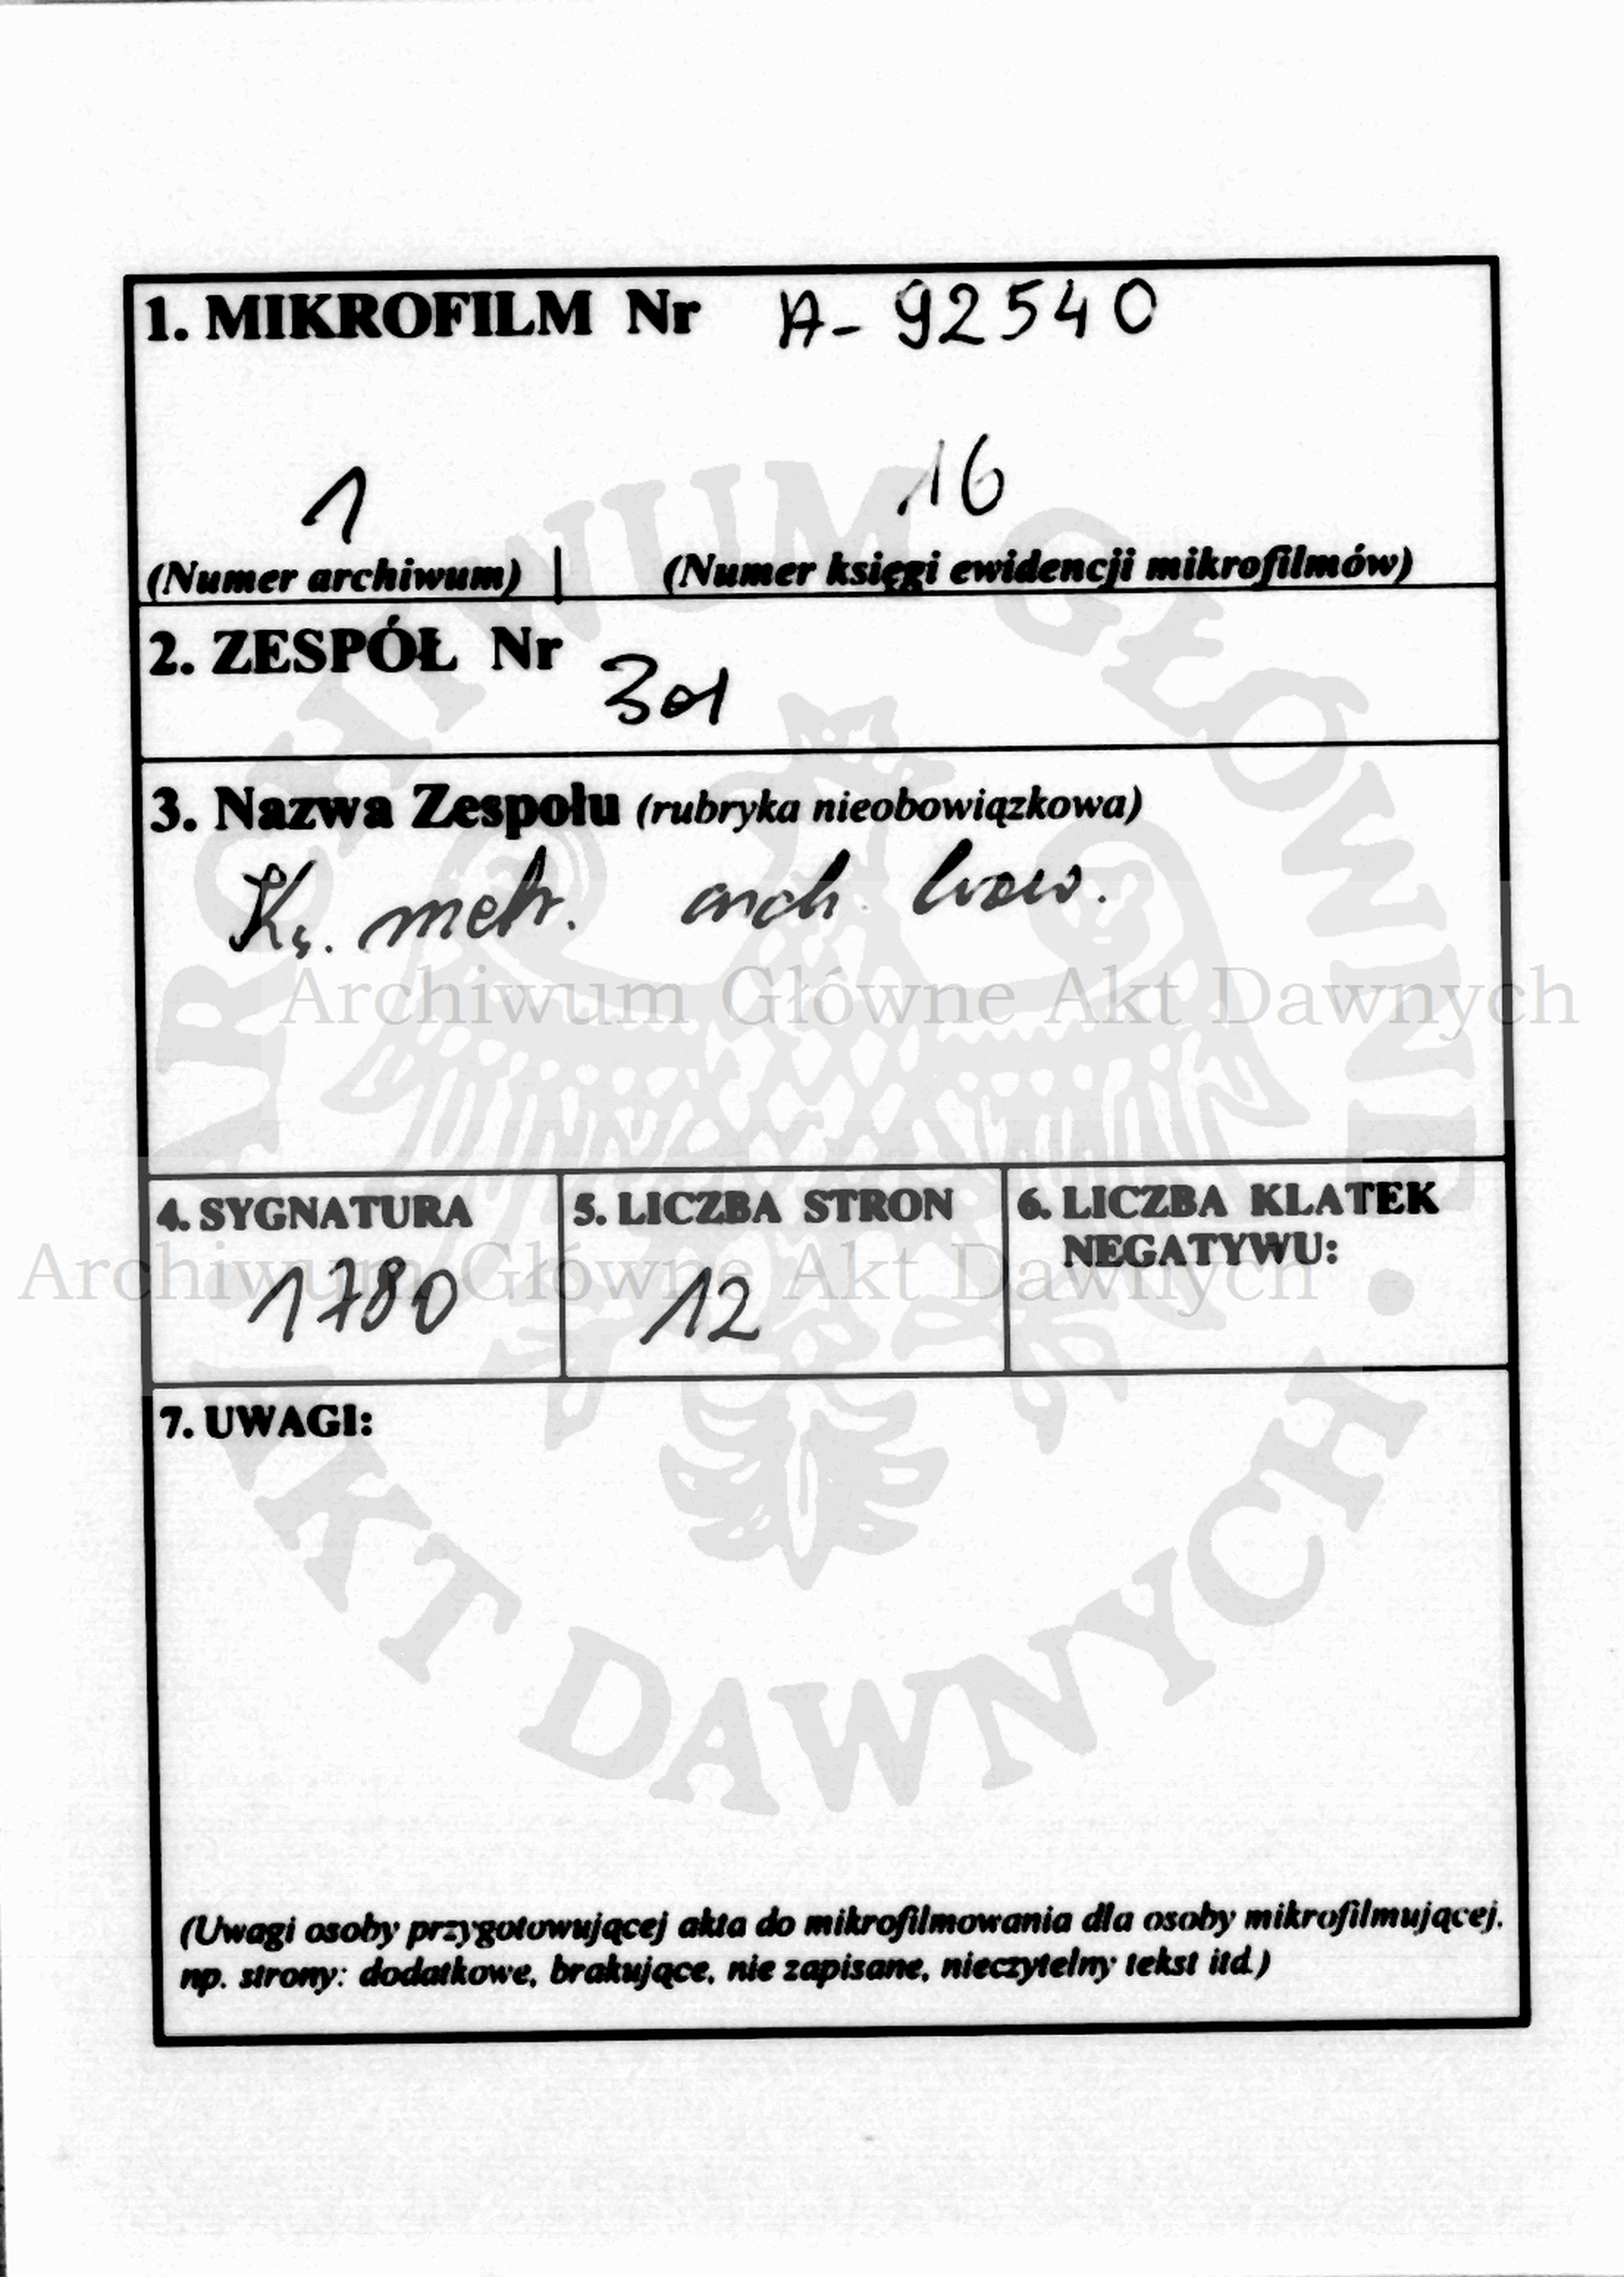 1. MIKROFILM Nr A-92540
1 16
(Numer archiwum) | (Numer księgi ewidencji mikrofilmów)
2. ZESPÓŁ Nr 301
3. Nazwa Zespołu (rubryka nieobowiązkowa)
Ks. metr. arch. lwow.
Archiwum Główne Akt Dawnych
4. SYGNATURA
1780
5. LICZBA STRON
12
6. LICZBA KLATEK
NEGATYWU:
Archiwum Główne Akt Dawnych
7. UWAGI:
(Uwagi osoby przygotowującej akta do mikrofilmowania dla osoby mikrofilmującej,
np. strony: dodatkowe, brakujące, nie zapisane, nieczytelny tekst itd.)
ARCHIWUM GŁÓWNE • AKT DAWNYCH